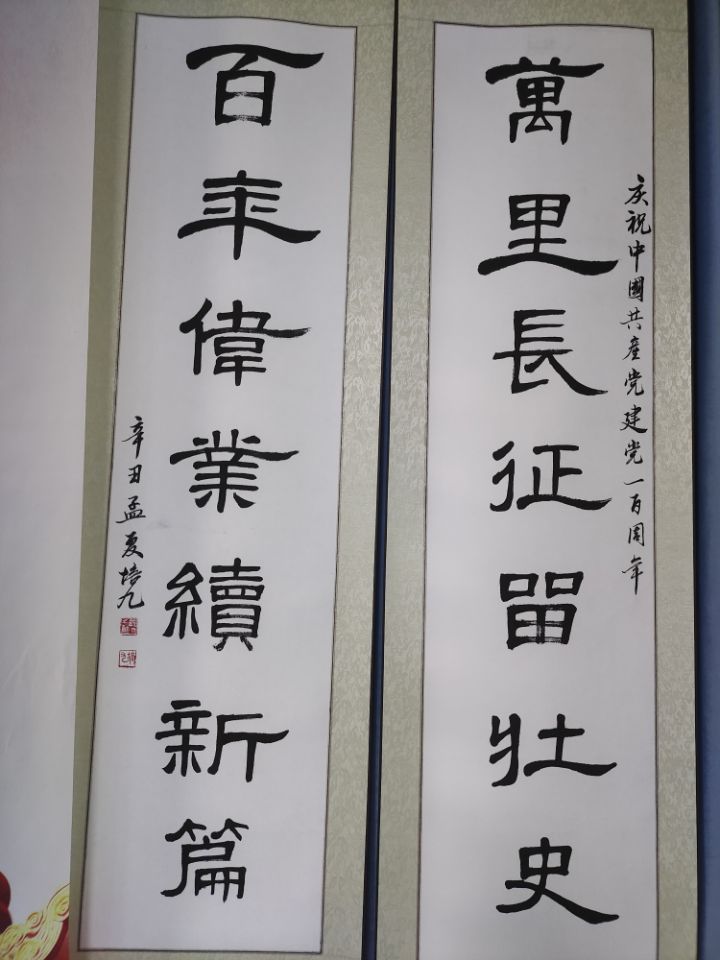 庆祝中國共產党建党一百周年
萬里長征留壯史
百年偉業續新篇
辛丑孟夏培九